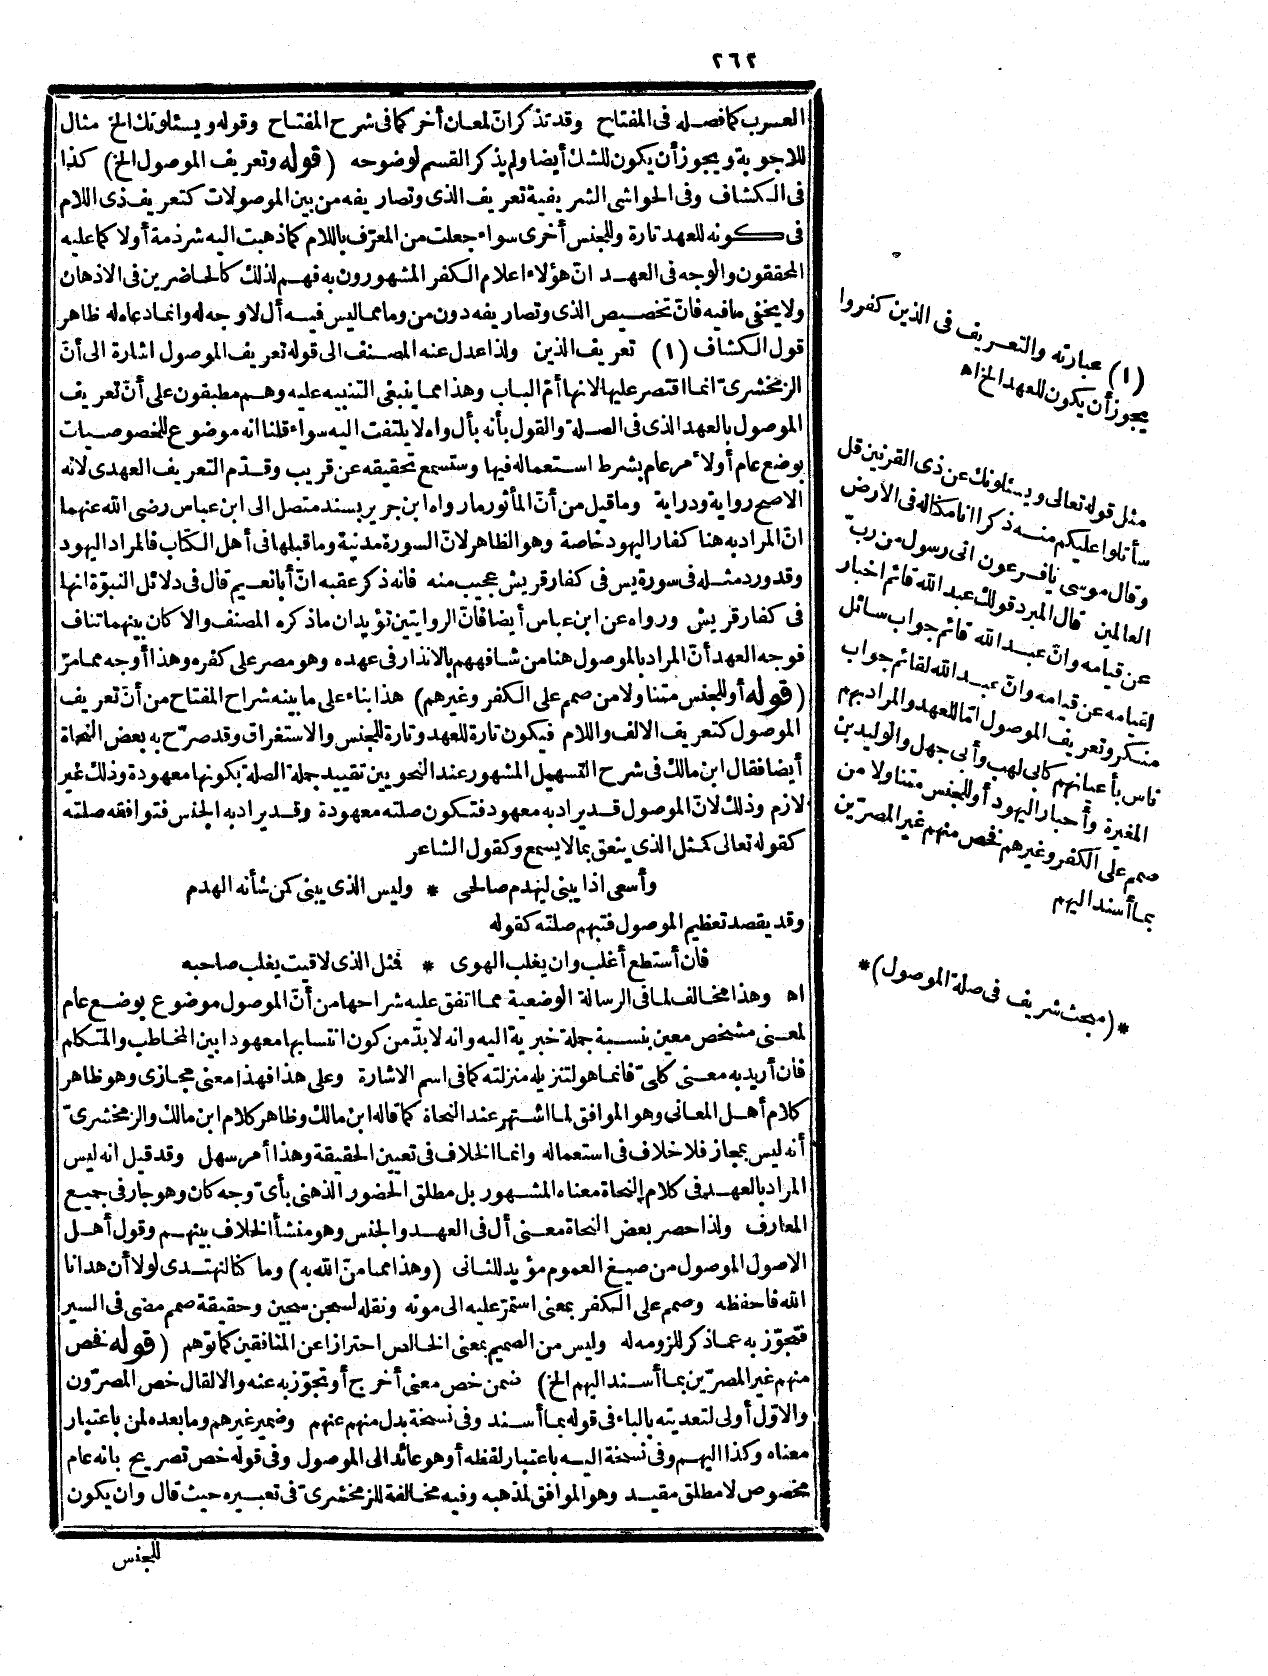 ٢٦٢
العرب كما فصله فى المفتاح وقد تذكر انّ لمعان أخر كما فى شرح المفتاح وقوله ويسئلونك الخ مثال
للاجوبة ويجوز أن يكون للشك أيضا ولم يذكر القسم لوضوحه (قوله وتعريف الموصول الخ) كذا
فى الكشاف وفى الحواشى الشريفية تعريف الذى وتصاريفه من بين الموصولات كتعريف ذى اللام
فى كونه للعهد تارة وللجنس أخرى سواء جعلت من المعرّف باللام كما ذهبت اليه شرذمة أولا كما عليه
المحققون والوجه فى العهد انّ هؤلاء اعلام الكفر المشهورون به فهم لذلك كالحاضرين فى الاذهان
ولا يخفى ما فيه فانّ تخصيص الذى وتصاريفه دون من وما مما ليس فيه أل لا وجه له وانما دعاه له ظاهر
قول الكشاف (١) تعريف الذين ولذا عدل عنه المصنف الى قوله تعريف الموصول اشارة الى أنّ
الزمخشرىّ انما اقتصر عليها لانها أمّ الباب وهذا مما ينبغى التنبيه عليه وهم مطبقون على أنّ تعريف
الموصول بالعهد الذى فى الصلة والقول بأنه بأل واه لا يلتفت اليه سواء قلنا انه موضوع للخصوصيات
بوضع عام أو لامر عام بشرط استعماله فيها وستسمع تحقيقه عن قريب وقدّم التعريف العهدى لانه
الاصح رواية ودراية وما قيل من أنّ المأثور ما رواه ابن جرير بسند متصل الى ابن عباس رضى الله عنهما
انّ المراد به هنا كفار اليهود خاصة وهو الظاهر لانّ السورة مدنية وما قبلها فى أهل الكتاب فالمراد اليهود
وقد ورد مثله فى سورة يس فى كفار قريش عجيب منه فانه ذكر عقبه انّ أبا نعيم قال فى دلائل النبوّة انها
فى كفار قريش ورواه عن ابن عباس أيضا فانّ الروايتين تؤيدان ما ذكره المصنف والا كان بينهما تناف
فوجه العهد أنّ المراد بالموصول هنا من شافههم بالانذار فى عهده وهو مصر على كفره وهذا أوجه مما مرّ
(قوله أو للجنس متناولا من صمم على الكفر وغيرهم) هذا بناء على ما بينه شراح المفتاح من أنّ تعريف
الموصول كتعريف الالف واللام فيكون تارة للعهد وتارة للجنس والاستغراق وقد صرّح به بعض النحاة
أيضا فقال ابن مالك فى شرح التسهيل المشهور عند النحويين تقييد جملة الصلة بكونها معهودة وذلك غير
لازم وذلك لانّ الموصول قد يراد به معهود فتكون صلته معهودة وقد يراد به الجنس فتوافقه صلته
كقوله تعالى كمثل الذى ينعق بما لا يسمع وكقول الشاعر
وأسعى اذا يبنى ليهدم صالحى * وليس الذى يبنى كمن شأنه الهدم
وقد يقصد تعظيم الموصول فتبهم صلته كقوله
فان أستطع أغلب وان يغلب الهوى * فمثل الذى لاقيت يغلب صاحبه
اه وهذا مخالف لما فى الرسالة الوضعية مما اتفق عليه شراحها من أنّ الموصول موضوع بوضع عام
لمعنى مشخص معين بنسبة جملة خبرية اليه وانه لا بدّ من كون انتسابها معهودا بين المخاطب والمتكلم
فان أريد به معنى كلىّ فانما هو لتنزيله منزلته كما فى اسم الاشارة وعلى هذا فهذا معنى مجازى وهو ظاهر
كلام أهل المعانى وهو الموافق لما اشتهر عند النحاة كما قاله ابن مالك وظاهر كلام ابن مالك والزمخشرىّ
أنه ليس بمجاز فلا خلاف فى استعماله وانما الخلاف فى تعيين الحقيقة وهذا أمر سهل وقد قيل انه ليس
المراد بالعهد فى كلام النحاة معناه المشهور بل مطلق الحضور الذهنى بأىّ وجه كان وهو جار فى جميع
المعارف ولذا حصر بعض النحاة معنى أل فى العهد والجنس وهو منشأ الخلاف بينهم وقول أهل
الاصول الموصول من صيغ العموم مؤيد للثانى (وهذا مما منّ الله به) وما كنا لنهتدى لولا أن هدانا
الله فاحفظه وصمم على الكفر بمعنى استمرّ عليه الى موته ونقله لسجن سجين وحقيقة صمم مضى فى السير
فتجوّز به عما ذكر للزومه له وليس من الصميم بمعنى الخالص احترازا عن المنافقين كما توهم (قوله فخص
منهم غير المصرّين بما أسند اليهم الخ) ضمن خص معنى أخرج أو تجوّز به عنه والا لقال خص المصرّون
والاوّل أولى لتعديته بالباء فى قوله بما أسند وفى نسخة بدل منهم عنهم وضمير غيرهم وما بعده لمن باعتبار
معناه وكذا اليهم وفى نسخة اليه باعتبار لفظه أو هو عائد الى الموصول وفى قوله خص تصريح بانه عام
مخصوص لا مطلق مقيد وهو الموافق لمذهبه وفيه مخالفة للزمخشرىّ فى تعبيره حيث قال وان يكون
للجنس
(١) عبارته والتعريف فى الذين كفروا
يجوز أن يكون للعهد الخ اه
مثل قوله تعالى ويسئلونك عن ذى القرنين قل
سأتلوا عليكم منه ذكرا انا مكنا له فى الارض
وقال موسى يا فرعون انى رسول من ربّ
العالمين قال المبرد قولك عبد الله قائم اخبار
عن قيامه وانّ عبد الله قائم جواب سائل
عن قيامه وانّ عبد الله لقائم جواب
منكر وتعريف الموصول امّا للعهد والمراد بهم
ناس بأعيانهم كأبى لهب وأبى جهل والوليد بن
المغيرة وأحبار اليهود أو للجنس متناولا من
صمم على الكفر وغيرهم فخص منهم غير المصرّين
بما أسند اليهم
*(مبحث شريف فى صلة الموصول)*